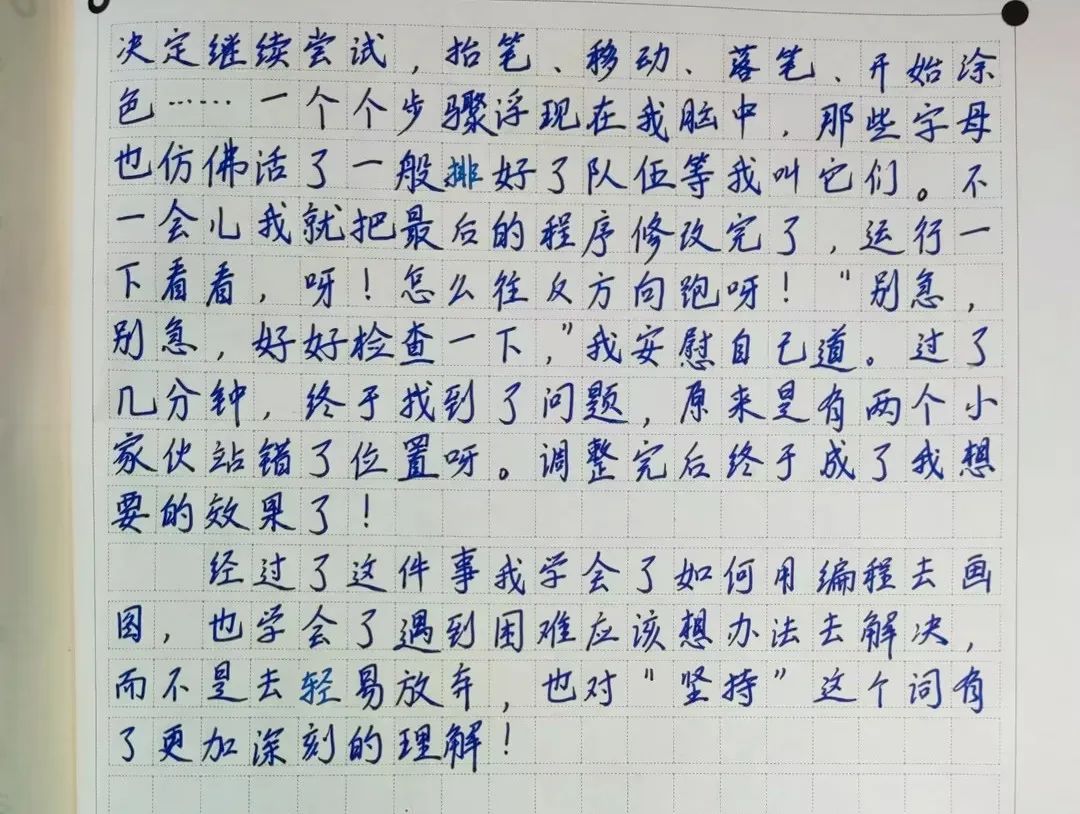 决定继续尝试，抬笔、移动、落笔、开始涂
色……一个个步骤浮现在我脑中，那些字母
也仿佛活了一般排好了队伍等我叫它们。不
一会儿我就把最后的程序修改完了，运行一
下看看，呀！怎么往反方向跑呀！“别急，
别急，好好检查一下，”我安慰自己道。过了
几分钟，终于找到了问题，原来是有两个小
家伙站错了位置呀。调整完后终于成了我想
要的效果了！
经过了这件事我学会了如何用编程去画
图，也学会了遇到困难应该想办法去解决，
而不是去轻易放弃，也对“坚持”这个词有
了更加深刻的理解！